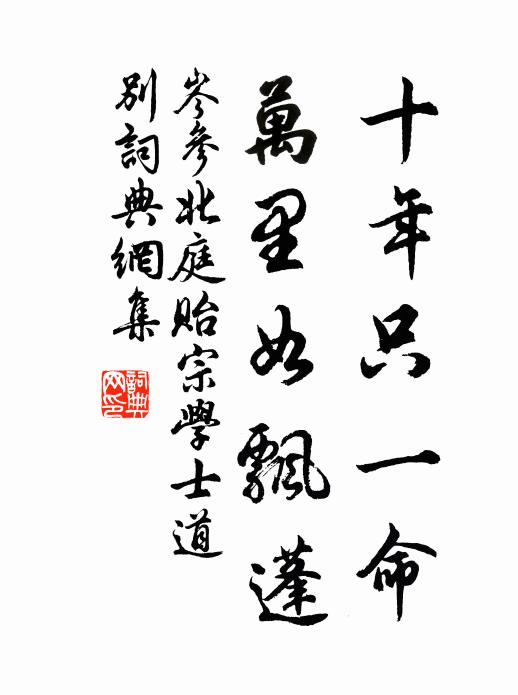 十年只一命
萬里如飄蓬
岑參北庭貽宗學士道
別詞典網集
詞典
网印